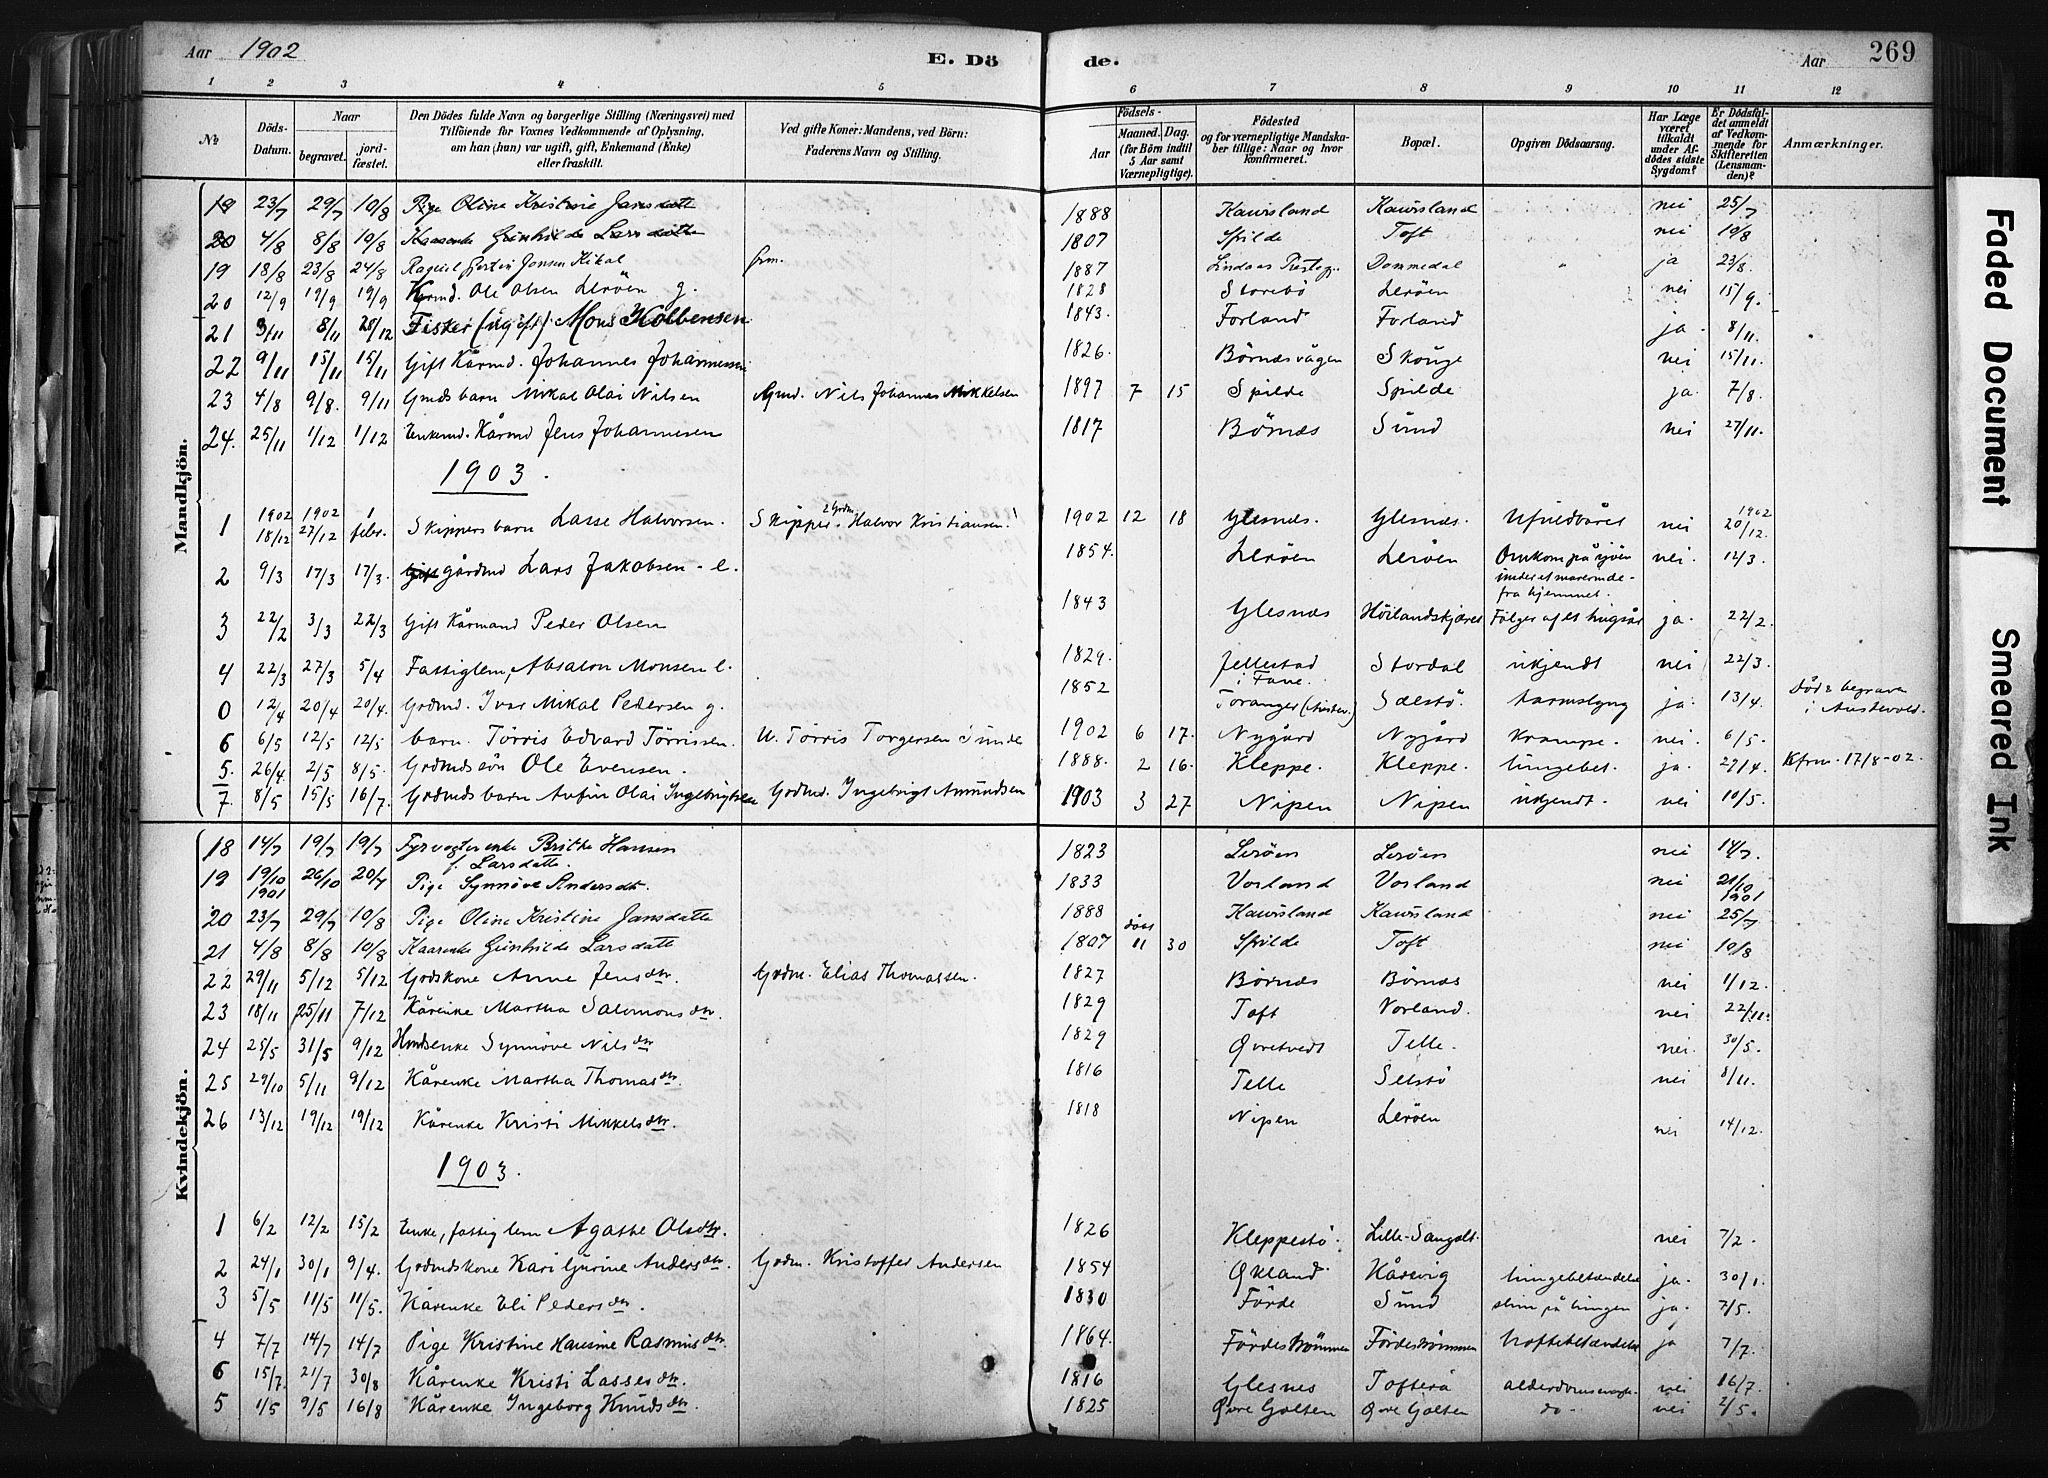 Aar 1902 E. Dö de. Aar 269
1 2 3 4 5 6 7 8 9 10 11 12
No. Döds-Datum. Naar begravet. jord-fæstet. Den Dödes fulde Navn og borgerlige Stilling (Næringsvei) med Tilföiende for Voxnes Vedkommende af Oplysning, om han (hun) var ugift, gift, Enkemand (Enke) eller fraskilt. Ved gifte Koner: Mandens, ved Börn: Faderens Navn og Stilling. Födsels- Aar Maaned. Dag. (for Börn indtil 5 Aar samt Værnepligtige). Födested og for værnepligtige Mandskaber tillige: Naar og hvor konfirmeret. Bopæl. Opgiven Dödsaarsag. Har Læge været tilkaldt under Afdödes sidste Sygdom? Er Dödsfaldet anmeldt af Vedkommende for Skifteretten (Lensmanden)? Anmærkninger.
Mandkjön.
19 23/7 29/7 10/8 Pige Oline Kristine Jansdatte 1888 Kausland Kausland nei 25/7
20 4/8 8/8 10/8 Kaarenke Gunhilde Larsdatte 1807 Spilde Toft nei 10/8
19 18/8 23/8 24/8 Jonsen Kikal 1887 Dommedal ja 23/8.
20 12/9 19/9 19/9 Ole Olsen Leröen g. 1828 Storebö Leröen nei 15/9.
21 3/11 8/11 25/12 Fisker (ugift) Mons Kolbensen 1843. Forland Forland ja 8/11.
22 9/11 15/11 15/11 Gift Kårmd. Johannes Johannessen 1826. Börnesvågen Skoge nei 15/11.
23 4/8 9/8. 9/11 Gmdsbarn Mikal Olai Nilsen Gmd. Nils Johannes Mikkelsen 1897 7 15 Spilde Spilde ja. 7/8.
24. 25/11 1/12 1/12 Enkemd. Kårmd Jens Johannesen 1817 Börnes Sund nei 27/11.
1903.
1 1902 18/12 1902 27/12 1 febr. Skippers barn Lasse Halvorsen. Skipper Halvor Kristiansen 1902 12 18 Glesnæs. Glesnæs. Ufuldbåret nei 1902 20/12.
2 9/3 17/3 17/3. Gift gårdmd Lars Jakobsen - e. 1854. Leröen Leröen Omkom på sjöen under et marerinde- fra hjemmet. nei. 12/3.
3 22/2 3/3 22/3 Gift Kårmand Peder Olsen 1843 Glesnæs Höilandskjæret Fölger af et hugsår ja. 22/2.
4 22/3 27/3 5/4 Fattiglem, Absalon Monsen e. 1829. Jellestad i Fane. Stordal ukjendt nei 22/3.
0 12/4 20/4 20/4. Grdmd. Ivar Mikal Pedersen g. 1852 Toranger (Austev.) Sælstö. tarmslyng ja. 13/4. Död & begraven i Austevold.
6 6/5 12/5 12/5 barn. Törris Edvard Törrissen. U. Törris Torgersen Sunde 1902 6 17. Nygård Nygård Krampe. nei. 6/5.
5. 26/4. 2/5 8/5. Grdmdssön Ole Evensen. 1888. 2 16. Kleppe. Kleppe. lungebet. ja. 27/4. Kfrm. 17/8-02.
7. 8/5 15/5 16/7. Grdmdsbarn Anfin Olai Ingebrigtsen Grdmd. Ingebrigt Amundsen 1903 3 27 Nipen Nipen ukjendt. nei 10/5.
Kvindekjön.
18 14/7 19/7 19/7 Fyrvogterenke Brithe Hansen f. Larsdatte. 1823 Leröen Leröen nei 14/7.
19 19/10 1901 26/10 20/7 Pige Synnöve Andersdt. 1833 Vorland Vorland nei 21/10 1901
20 23/7 29/7 10/8 Pige Oline Kristine Jansdatte 1888 Kausland Kausland nei 25/7
21 4/8 8/8 10/8 Kaarenke Gunhilde Larsdatt 1807 11 30 Spilde Toft nei 10/8
22 29/11 5/12 5/12 Grdskone Anne Jensdtr. Grdm. Elias Thomassen. 1827 Börnæs Börnæs nei 1/12.
23 18/11 25/11 7/12 Kårenke Martha Salomonsdtr. 1829 Toft Vorland. nei 22/11.
24 25/5 31/5 9/12 Hmdsenke Synnöve Nilsdtr 1829 Qvretvedt Telle. nei. 30/5.
25 29/10 5/11 9/12 Kårenke Martha Thomasdtr. 1816 Telle Selstö nei 8/11.
26 13/12 19/12 19/12 Kårenke Kristi Mikkelsdtr. 1818 Nipen Leröen nei 14/12.
1903.
1 6/2 12/2 15/2 Enke, fattiglem Agathe Olsdtr. 1826 Kleppestö. Lille-Sangolt. nei 7/2.
2 24/1 30/1 9/4. Grdmdskone Kari Gurine Andersdtr. Grdm. Kristoffer Andersen 1854 Økland Kårevig lungebetændelse ja. 30/1.
3 5/5 11/5 11/5. Kårenke Eli Pedersdtr. 1830 Förde Sund slim på lungen ja. 7/5.
4 7/7 14/7 14/7 Pige Kristine Hansine Rasmusdtr. 1864. Fördeströmmen Fördeströmmen hoftebetændelse ja 7/7.
6 15/7. 21/7 30/8 Kårenke Kristi Lassesdtr. 1816 Glesnes Tofterö nei 16/7.
5 1/5 9/5 16/8 Kårenke Ingeborg Knudsdtr. 1825 Øvre Golten Øvre Golten do- nei 2/5.
Faded Document
Smeared Ink